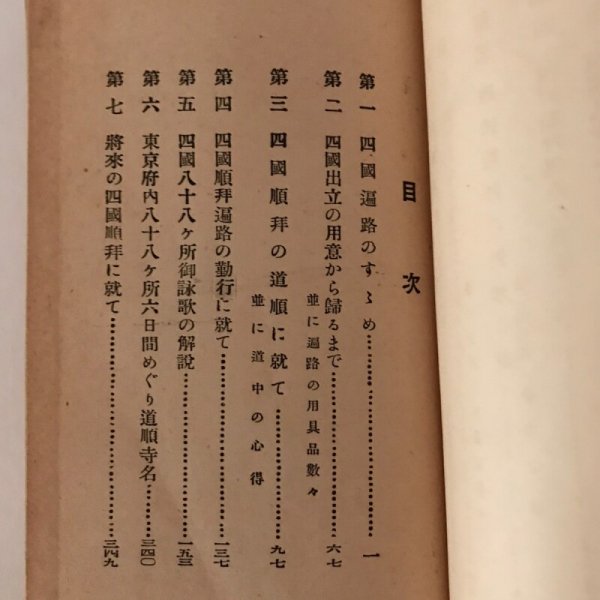 目次
第一 四國遍路のすゝめ……………一
第二 四國出立の用意から歸るまで……………六七
並に遍路の用具品數々
第三 四國順拜の道順に就て……………九七
並に道中の心得
第四 四國順拜遍路の勤行に就て……………一三七
第五 四國八十八ヶ所御詠歌の解說……………一五三
第六 東京府內八十八ヶ所六日間めぐり道順寺名……………三四〇
第七 將來の四國順拜に就て……………三四九